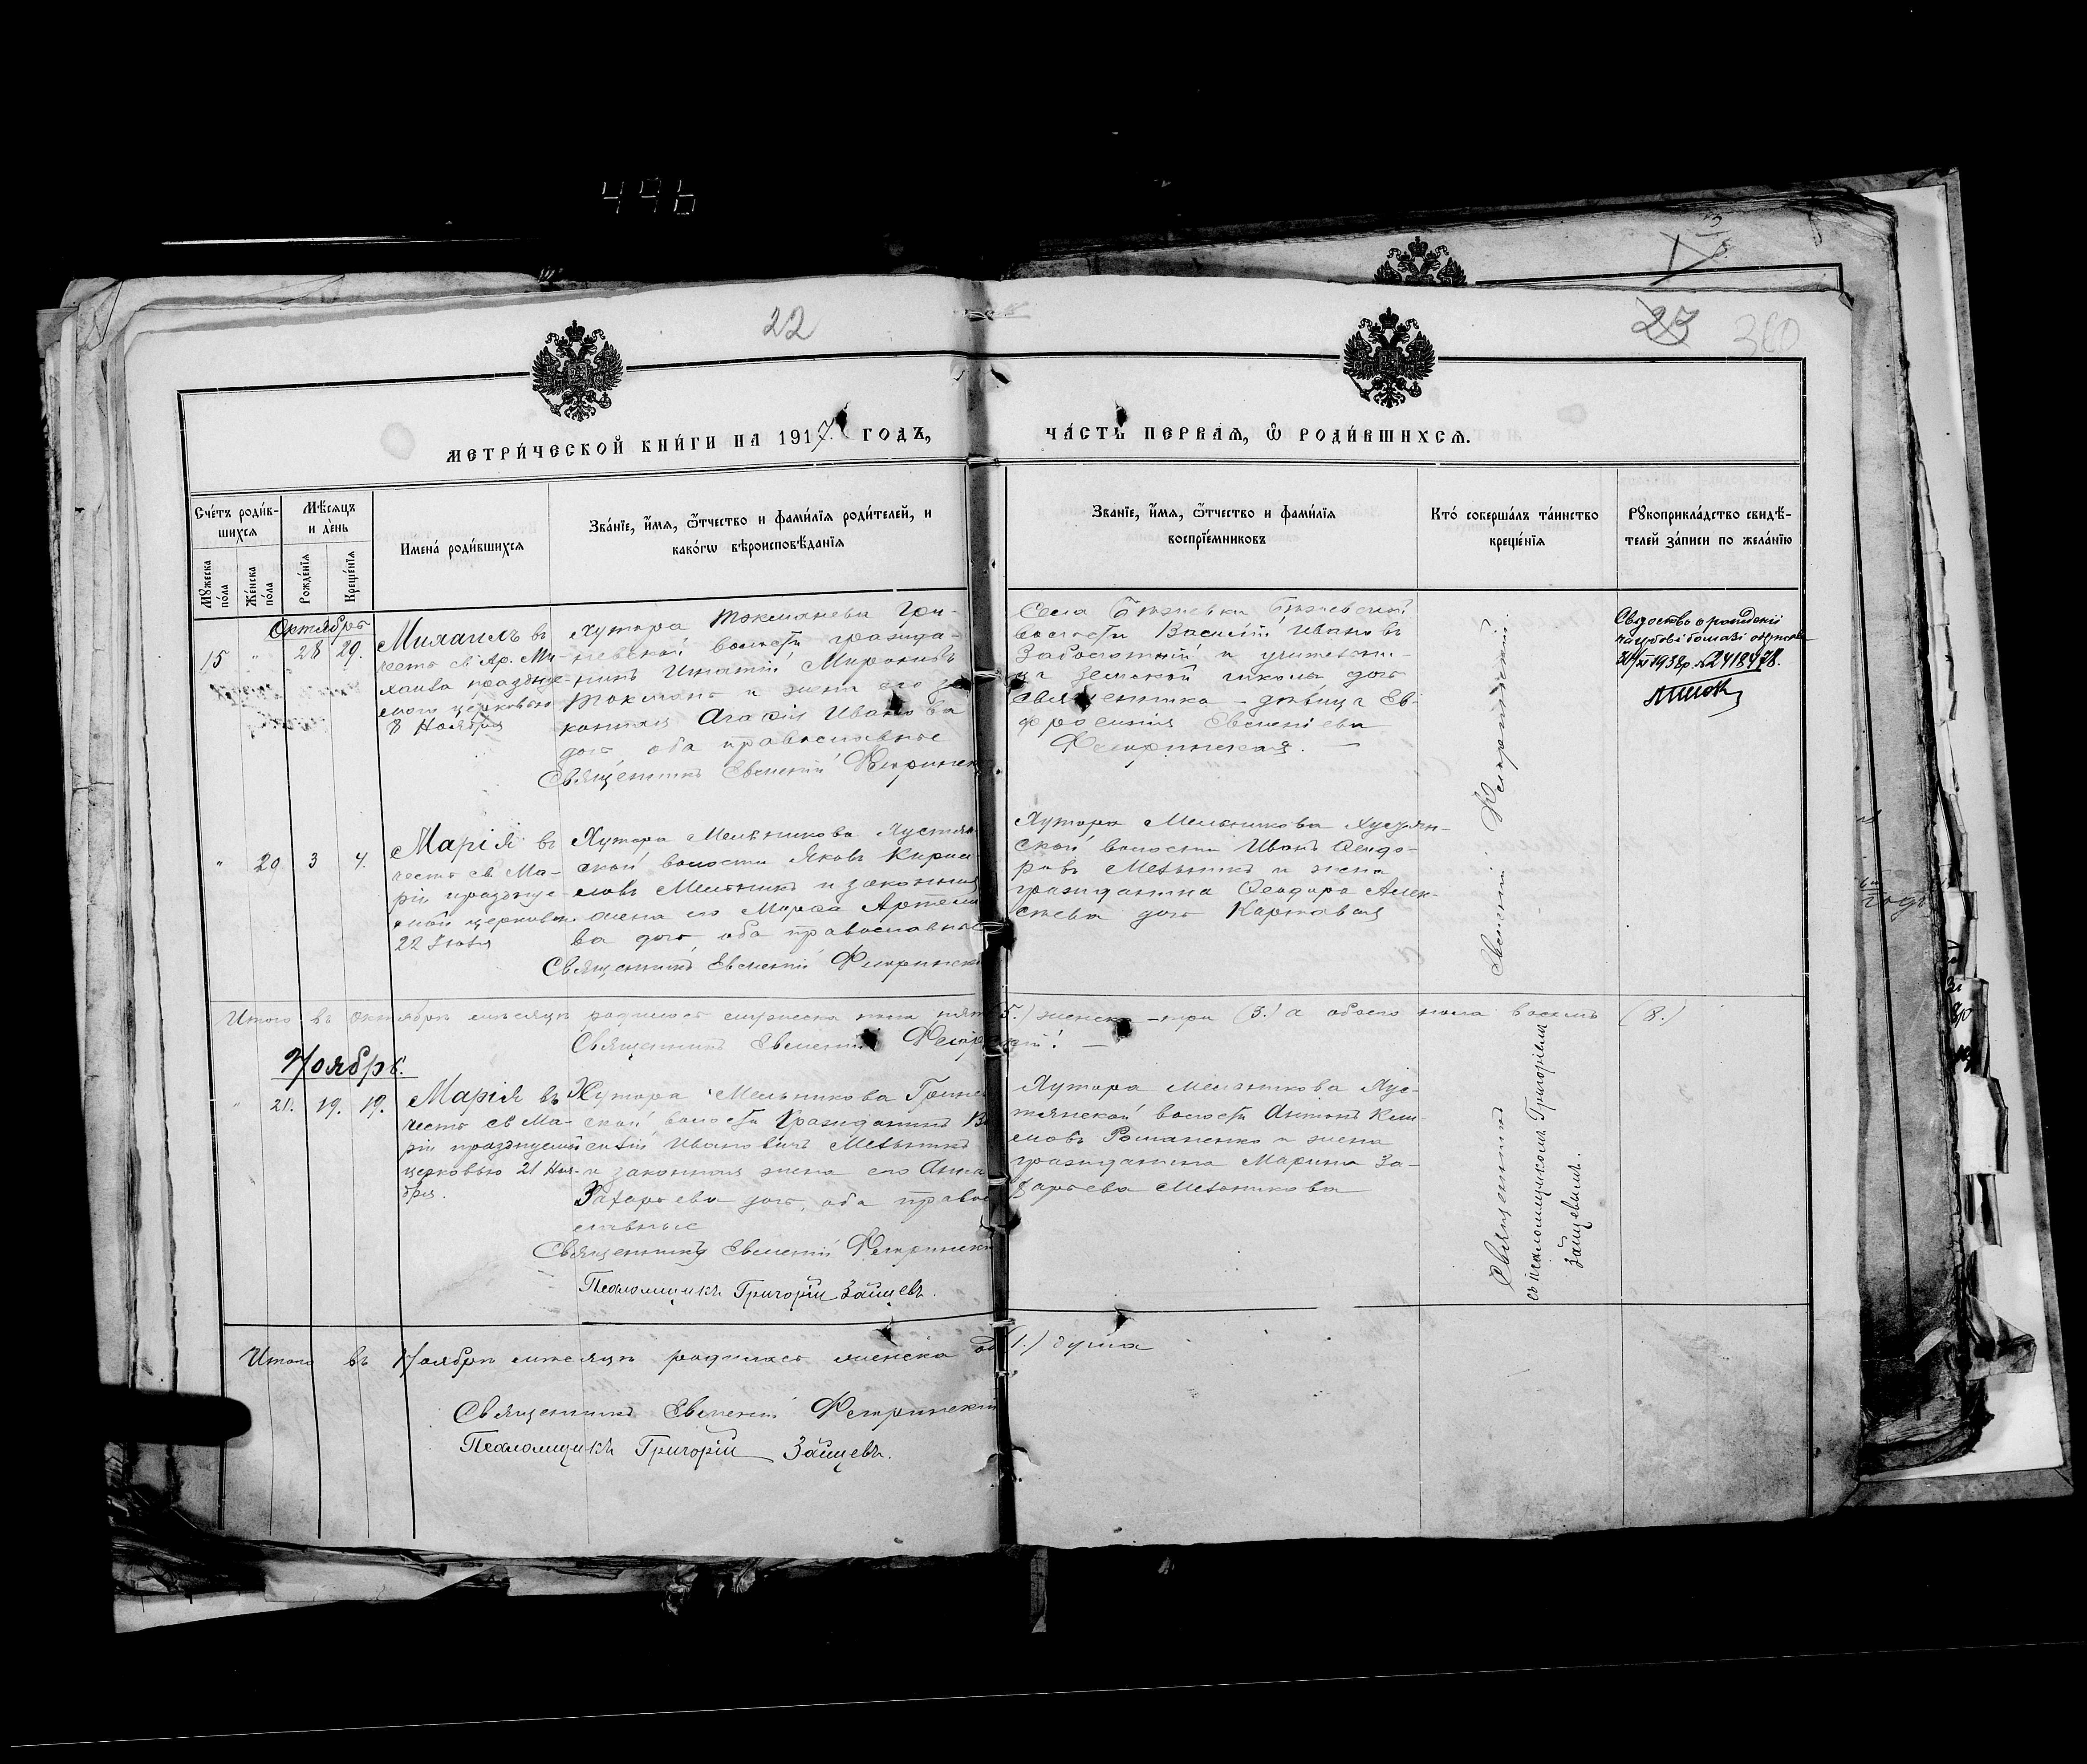 496
22
23
360
МЕТРИ́ЧЕСКОЙ КНИ́ГИ НА 1917. ГОДЪ,
ЧА́СТЬ ПЕРВАЯ, Ѿ РОДИ́ВШИХСЯ.
Сче́тъ роди́в-
шихся
Мѣ́сяцъ
и де́нь
Имена̀ роди́вшихся
Зва́нїе, и́мя, ѻ́тчество и фами́лїя роди́телей, и
како́гѡ вѣроисповѣ́данїя
Мꙋ́жеска по́ла
Же́нска по́ла
Рожде́нїя
Креще́нїя
Зва́нїе, и́мя, ѻ́тчество и фами́лїя
воспрїе́мниковъ
Кто́ соверша́лъ та́инство
креще́нїя
Рꙋкоприкла́дство свидѣ́-
телей за́писи по жела́нїю
Октябрь
15 " 28 29.
Михаилъ въ
честь св. Ар. Ми-
хаила праздnуе-
маго церковью
8 Ноября
Хутора Токманева Гри-
невской волости гражда-
нинъ Игнатій Мироновъ
Токманъ и жена его за-
конная Агафія Иванова
дочь, оба православные
Священникъ Евменій Феоринск
Села Бѣжевки Бѣжевской
волости Василій Ивановъ
Заболотній и учительни-
ца Земской школы дочь
священника - дѣвица Ев-
фросинія Евменіева
Свідоство о рождені
31/XI 1938р. №2418478.
" 20 3 4.
Марія въ
честь св. Ма-
ріи праздnуе-
мой церковью
22 Іюля
Хутора Мельникова Хустян-
ской волости Яковъ Кирил-
ловъ Мельникъ и законная
жена его Марфа Артемie-
ва дочь, оба православные
Священникъ Евменій
Хутора Мельникова Хустян-
ской волости Иванъ Феодо-
ровъ Мельникъ и жена
гражданина Феодора Алек-
сѣева дочь Карповая
Итого въ Октябрѣ мѣсяцѣ родилось мужеска пола пять 5.) женска - три (3.) а обоего пола восемь (8.)
Священникъ Евменій
Ноябрь.
" 21. 19. 19.
Марія въ
честь св. Ма-
ріи праздnуемой
церковью 21 Ноя-
бря.
Хутора Мельникова Гринев-
ской волости Гражданинъ Ва-
силій Ивановичъ Мельникъ
и законная жена его Анна
Захарьева дочь, оба право-
славные
Священникъ Евменій
Псаломщикъ Григорій Зайцевъ.
Хутора Мельникова Хус-
тянской волости Антонъ Кли-
мовъ Романенко и жена
гражданина Марина За-
харьева Мельникова
Священникъ Евменій
съ псаломщикомъ Григоріемъ
Зайцевымъ.
Итого въ Ноябрѣ мѣсяцѣ родилась женска од (1.) душа
Священникъ Евменій
Псаломщикъ Григорій Зайцевъ.